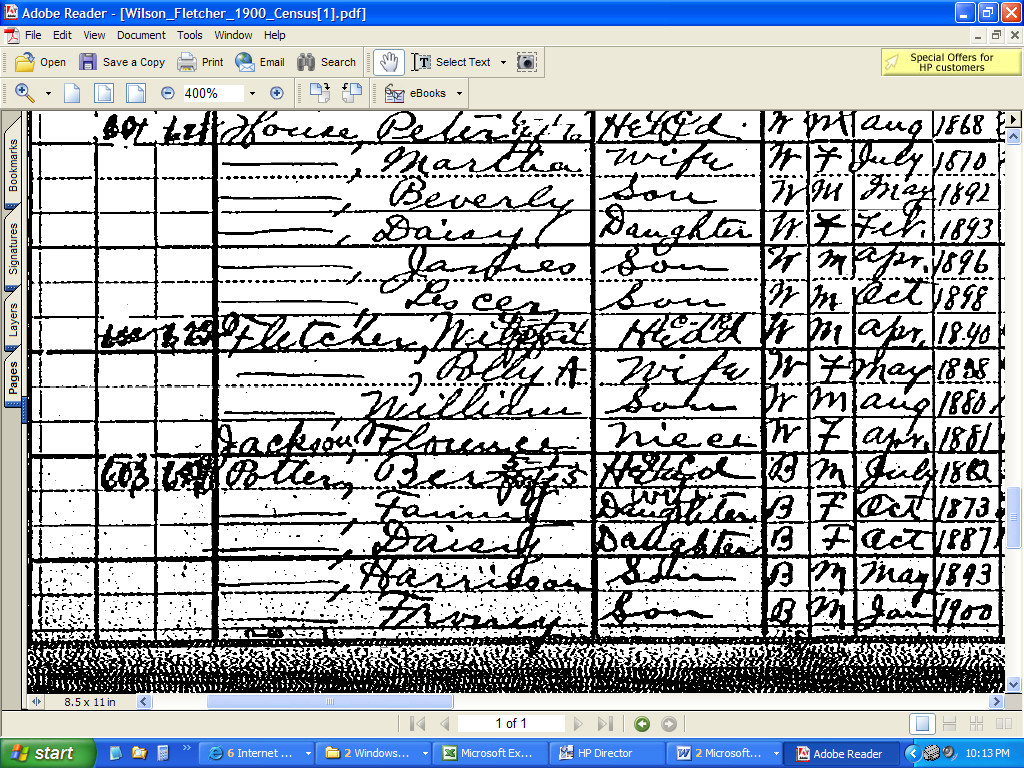 Adobe Reader - [Wilson_Fletcher_1900_Census[1].pdf]
File Edit View Document Tools Window Help
Open Save a Copy Print Email Search Select Text Special Offers for
HP customers
400% eBooks
Bookmarks
Signatures
Layers
Pages
House, Peter Head W M Aug 1868
, Martha Wife W F July 1870
, Beverly Son W M May 1892
, Daisy Daughter W F Feb. 1893
, James Son W M Apr. 1896
, Son W M Oct 1898
Fletcher, Wilson Head W M Apr. 1840
, Polly A Wife W F May
, William Son W M Aug 1880
Jackson, Florence Niece W F Apr. 1881
603 Potter, Head B M July
, Fanny Daughter B F Oct 1873
, Daisy Daughter B F Oct 1887
, Harrison Son B M May 1893
, Son B M Jan 1900
8.5 x 11 in
1 of 1
start 6 Internet ... 2 Windows... Microsoft Ex... HP Director 2 Microsoft... Adobe Reader 10:13 PM